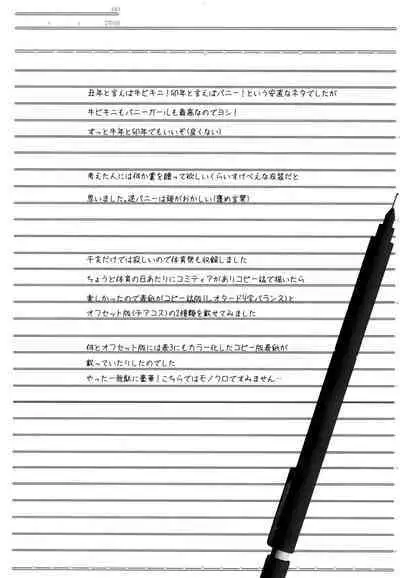 丑年と言えば牛ビキニ！卯年と言えばバニー！という安直なネタでしたが
牛ビキニもバニーガールも最高なのでヨシ！
ずっと牛年と卯年でもいいぞ(良くない)
考えた人には何か賞を贈って欲しいくらいすけべえな衣装だと
思いました。逆バニーは頭がおかしい(褒め言葉)
干支だけでは寂しいので体育祭も収録しました
ちょうど体育の日あたりにコミティアがありコピー誌で描いたら
楽しかったので表紙がコピー誌版(レオタードY字バランス)と
オフセット版(チアコス)の2種類を載せてみました
何とオフセット版には表3にもカラー化したコピー版表紙が
載っていたりしたのでした
やったー無駄に豪華！こちらではモノクロですみません…